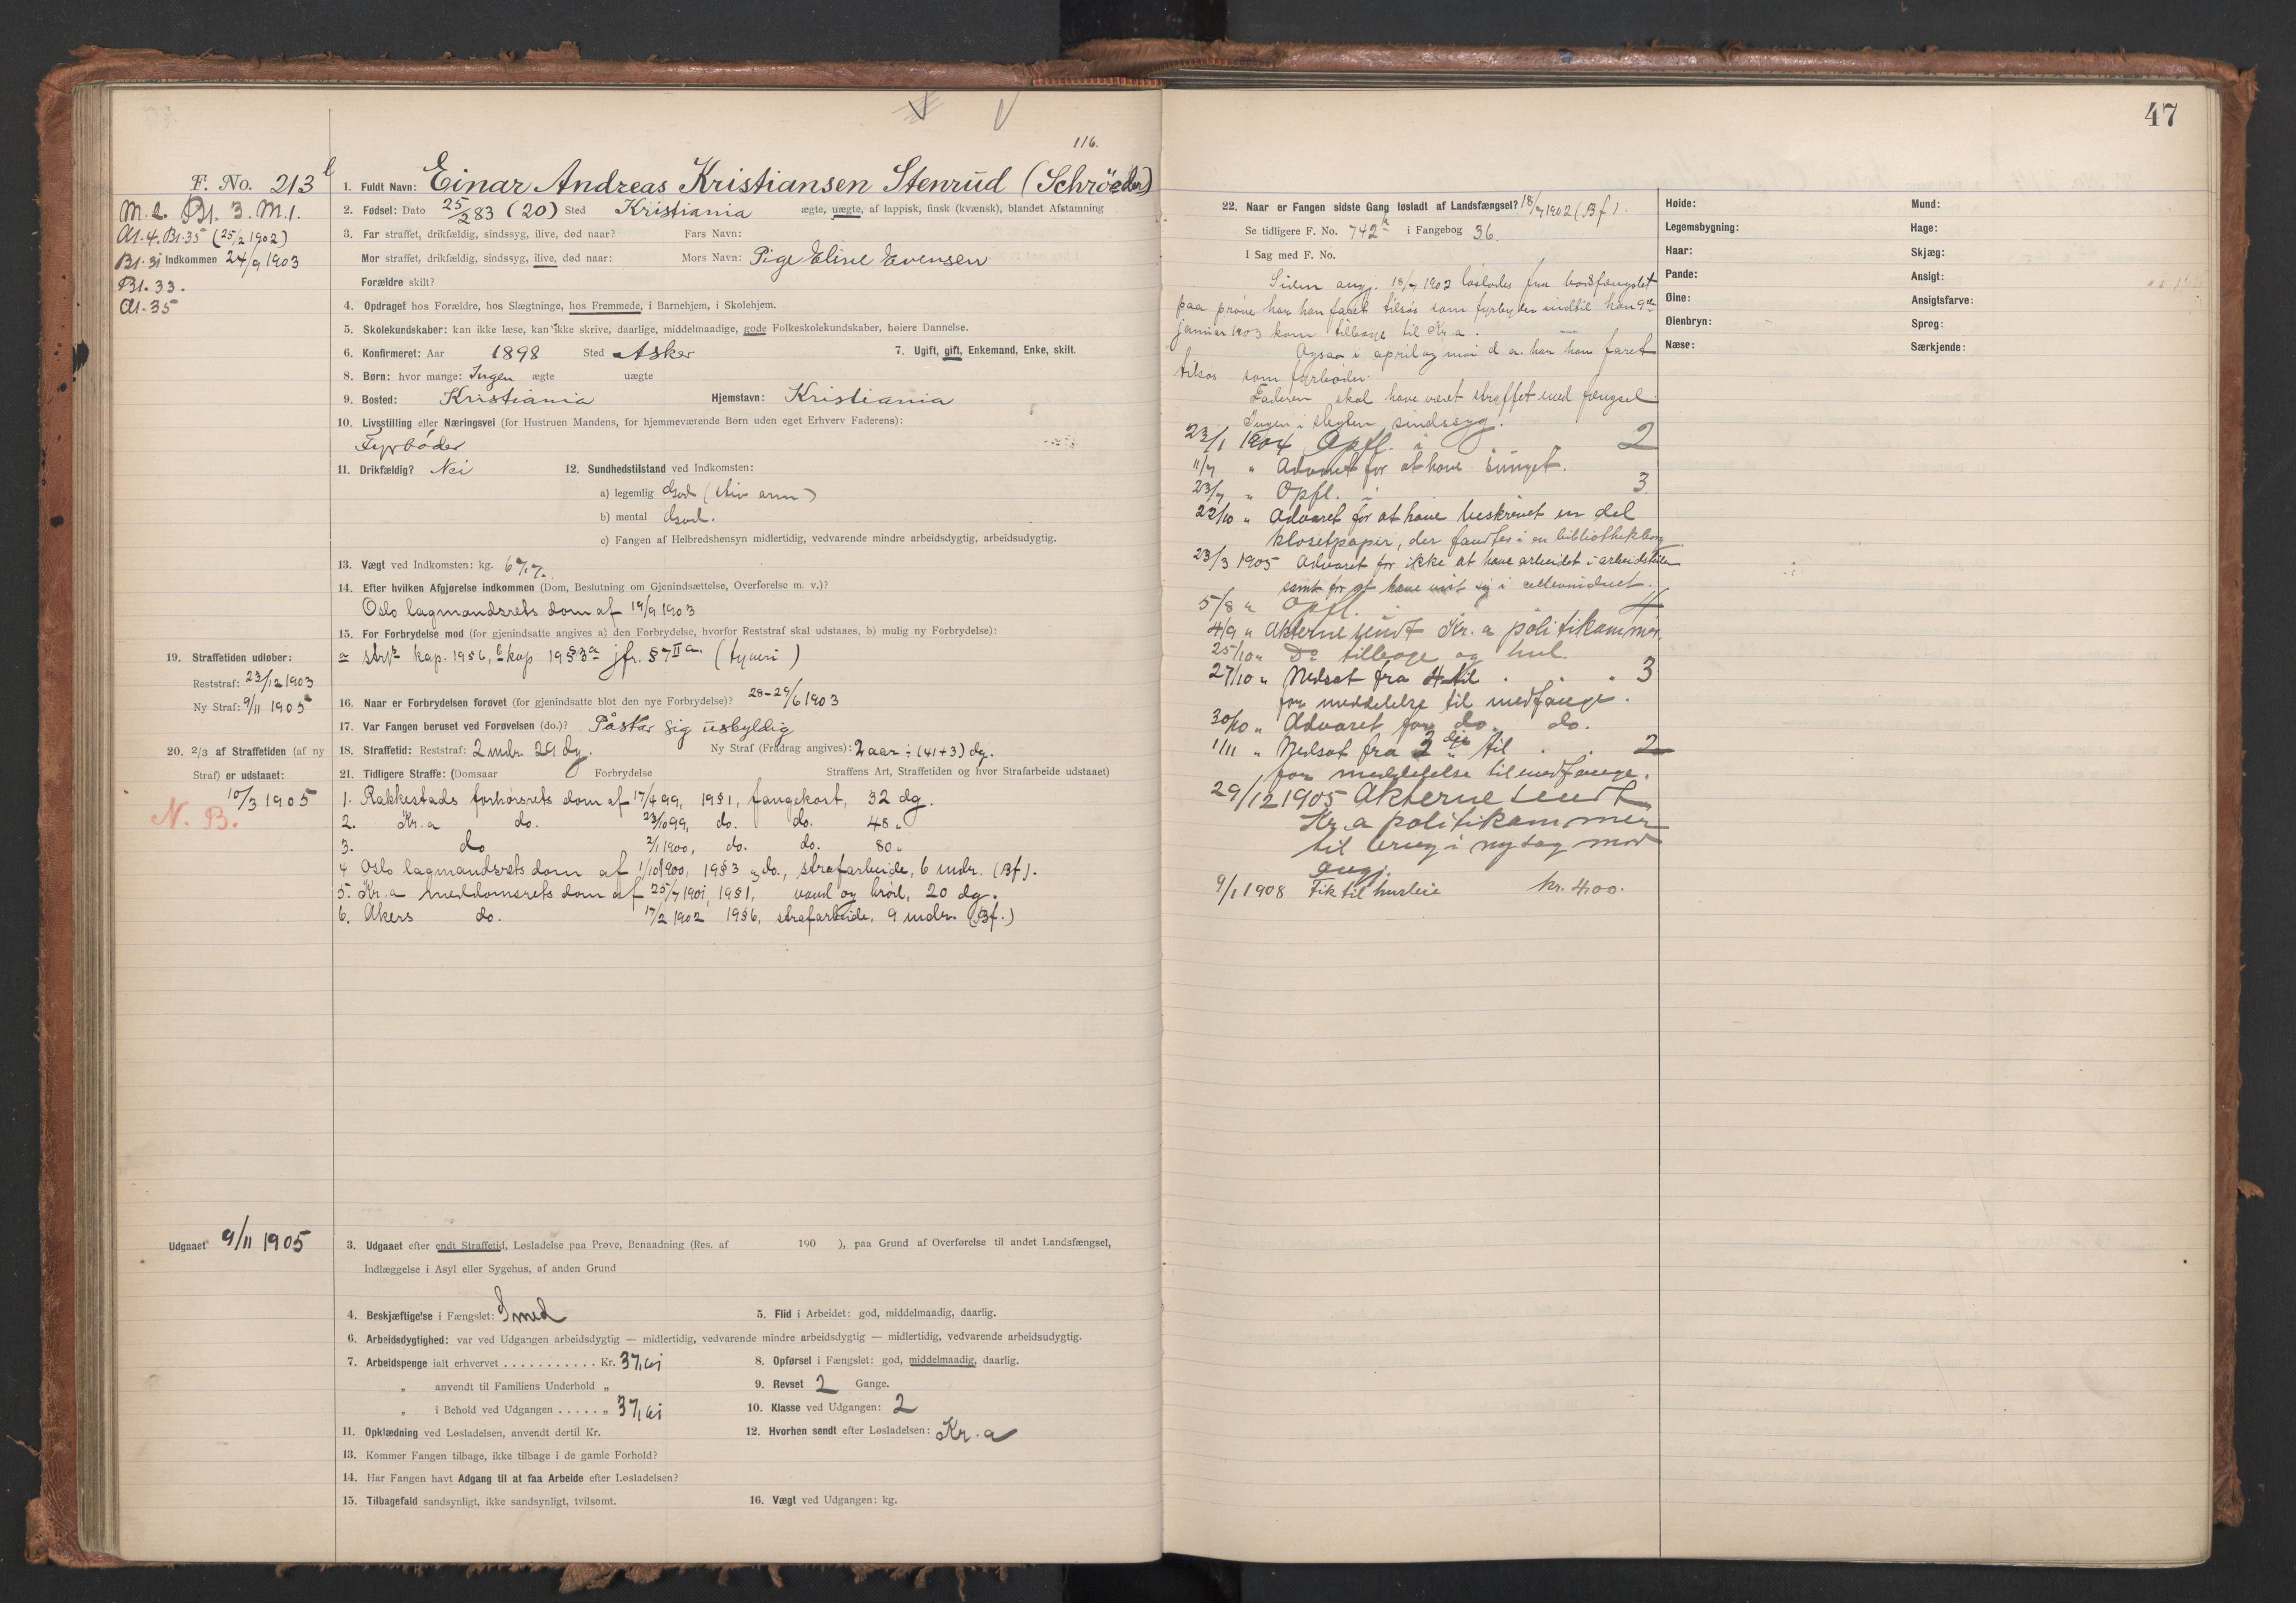 116.
F. No. 213 b
M. 2. Bl. 3. M. 1.
Al. 4. Bl. 35 (25/2 1902)
Bl. 31 Indkommen 24/9 1903
Bl. 33.
Al. 35
1. Fuldt Navn: Einar Andreas Kristiansen Stenrud (Schröder)
2. Fødsel: Dato 25/2 83 (20) Sted Kristiania ægte, uægte, af lappisk, finsk (kvænsk), blandet Afstamning
3. Far straffet, drikfældig, sindssyg, ilive, død naar? Fars Navn:
Mor straffet, drikfældig, sindssyg, ilive, død naar: Mors Navn: Pige Eline Evensen
Forældre skilt?
4. Opdraget hos Forældre, hos Slægtninge, hos Fremmede, i Barnehjem, i Skolehjem.
5. Skolekundskaber: kan ikke læse, kan ikke skrive, daarlige, middelmaadige, gode Folkeskolekundskaber, høiere Dannelse.
6. Konfirmeret: Aar 1898 Sted Asker 7. Ugift, gift, Enkemand, Enke, skilt.
8. Børn: hvor mange: Ingen ægte uægte
9. Bosted: Kristiania Hjemstavn: Kristiania
10. Livsstilling eller Næringsvei (for Hustruen Mandens, for hjemmeværende Børn uden eget Erhverv Faderens):
Fyrbøder
11. Drikfældig? Nei 12. Sundhedstilstand ved Indkomsten:
a) legemlig God (stiv arm)
b) mental God.
c) Fangen af Helbredshensyn midlertidig, vedvarende mindre arbeidsdygtig, arbeidsudygtig.
13. Vægt ved Indkomsten: kg.
14. Efter hvilken Afgjørelse indkommen (Dom, Beslutning om Gjenindsættelse, Overførelse m. v.)?
Oslo lagmandsrets dom af 19/9 1903
15. For Forbrydelse mod (for gjenindsatte angives a) den Forbrydelse, hvorfor Reststraf skal udstaaes, b) mulig ny Forbrydelse):
a strfl. kap. 19§6, b kap 19§3a jfr. §7 II a. (tyveri)
19. Straffetiden udløber:
Reststraf: 23/12 1903
Ny Straf: 9/11 1905
16. Naar er Forbrydelsen forøvet (for gjenindsatte blot den nye Forbrydelse)? 28-29/6 1903
17. Var Fangen beruset ved Forøvelsen (do.)? Påstår sig uskyldig
20. 2/3 af Straffetiden (af ny
Straf) er udstaaet:
10/3 1905
N. B.
18. Straffetid: Reststraf: 2 mdr. 29 dg. Ny Straf (Fradrag angives): 2 aar ÷ (41+3) dg.
21. Tidligere Straffe: (Domsaar Forbrydelse Straffens Art, Straffetiden og hvor Strafarbeide udstaaet)
1. Rakkestads forhørsrets dom af 17/4 99, 19§1, fangekost, 32 dg.
2. Kr.a do. 23/10 99, do. do. 48 "
3. do 2/1 1900, do. do. 80 "
4 Oslo lagmandsrets dom af 1/10 1900, 19§3 og do., strafarbeide, 6 mdr. (Bf).
5. Kr.a meddomsrets dom af 25/7 1901, 19§1, vand og brød, 20 dg.
6. Akers do. 17/2 1902 19§6, strafarbeide, 9 mdr. (Bf.)
Udgaaet 9/11 1905
3. Udgaaet efter endt Straffetid, Løsladelse paa Prøve, Benaadning (Res. af 190 ), paa Grund af Overførelse til andet Landsfængsel,
Indlæggelse i Asyl eller Sygehus, af anden Grund
4. Beskjæftigelse i Fængslet: Smed 5. Flid i Arbeidet: god, middelmaadig, daarlig.
6. Arbeidsdygtighed: var ved Udgangen arbeidsdygtig — midlertidig, vedvarende mindre arbeidsdygtig — midlertidig, vedvarende arbeidsudygtig.
7. Arbeidspenge ialt erhvervet . . . . . . . . . . . Kr. 37,61 8. Opførsel i Fængslet: god, middelmaadig, daarlig.
„ anvendt til Familiens Underhold „ 9. Revset 2 Gange.
„ i Behold ved Udgangen . . . . . „ 37,61 10. Klasse ved Udgangen: 2
11. Opklædning ved Løsladelsen, anvendt dertil Kr. 12. Hvorhen sendt efter Løsladelsen: Kr.a
13. Kommer Fangen tilbage, ikke tilbage i de gamle Forhold?
14. Har Fangen havt Adgang til at faa Arbeide efter Løsladelsen?
15. Tilbagefald sandsynligt, ikke sandsynligt, tvilsomt. 16. Vægt ved Udgangen: kg.
47
22. Naar er Fangen sidste Gang løsladt af Landsfængsel? 18/7 1902 (Bf).
Se tidligere F. No. 742 a i Fangebog 36.
I Sag med F. No.
Siden angj. 18/7 1902 løslodes fra bodsfængslet
paa prøve har han faret tilsøs som fyrbøder indtil han 9de
januar 1903 kom tilbage til Kr.a.
Ogsaa i april og mai d. a. har han faret
tilsøs som fyrbøder.
Faderen skal have været straffet med fængsel.
Ingen i slegten sindssyg.
23/1 1904 Opfl. i 2
11/7 " Advaret for at have sunget.
23/7 " Opfl. i 3
22/10 " Advaret for at have beskrevet en del
klosetpapir, der fandtes i en bibliothekbog
23/3 1905 Advaret for ikke at have arbeidet i arbeidstiden
samt for at have vist sig i cellevinduet.
5/8 " Opfl. i 4
4/9 " Akterne sendt Kr.a politikammer.
25/10 " Do tilbage og hul.
27/10 " Nedsat fra 4 til . . . 3
for meddelelse til medfange.
30/10 " Advaret for do. do.
1/11 " Nedsat fra 3dje til . . 2
for meddelelse til medfange.
29/12 1905 Akterne sendt
Kr.a politikammer
til brug i ny sag mod
angj.
9/1 1908 Fik til husleie kr. 4.00.
Høide: Mund:
Legemsbygning: Hage:
Haar: Skjæg:
Pande: Ansigt:
Øine: Ansigtsfarve:
Øienbryn: Sprog:
Næse: Særkjende: